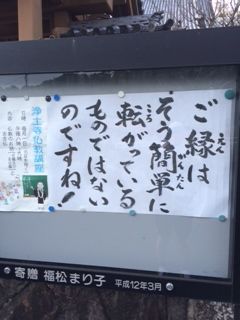 ご縁は
えん
そう簡単に
かんたん
転がっている
ころ
ものではない
のですね!
浄土寺仏教講座
寄贈 福松まり子 平成12年3月